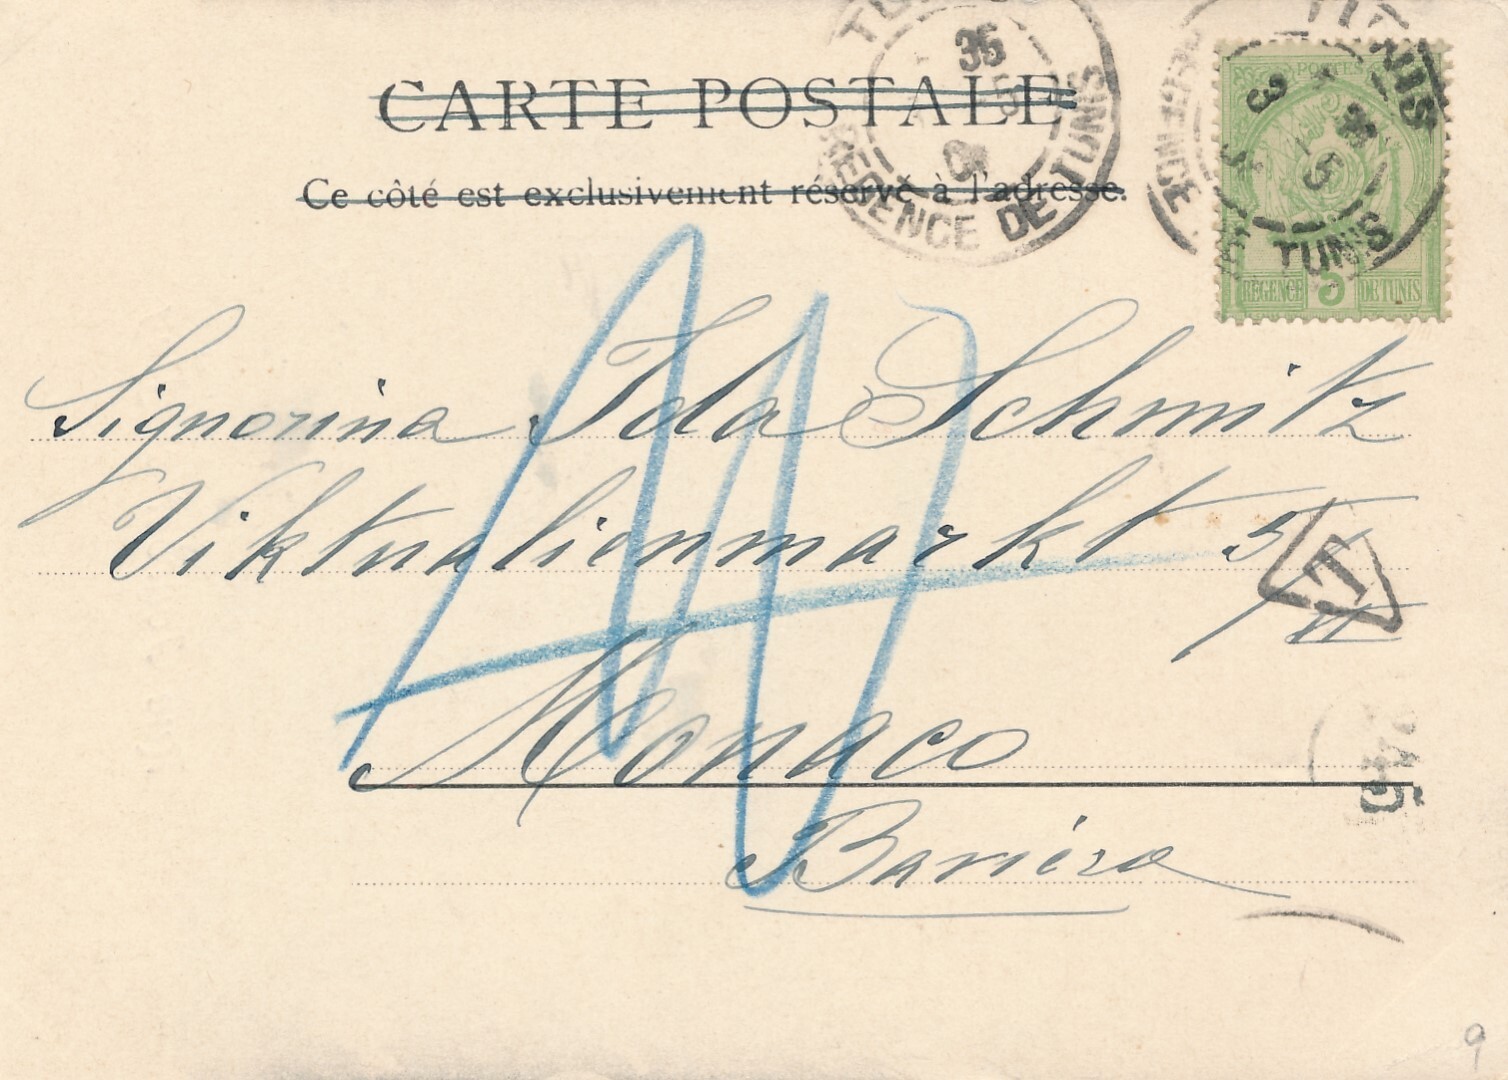 CARTE POSTALE
Ce côté est exclusivement réservé à l'adresse.
TUNIS
35
5
REGENCE DE TUNIS
TUNIS
3
35
5
REGENCE DE TUNIS
POSTES
REGENCE 5 DE TUNIS
Signorina Ida Schmitz
Viktualienmarkt 5/II
T
Monaco
Baviéra
5
9